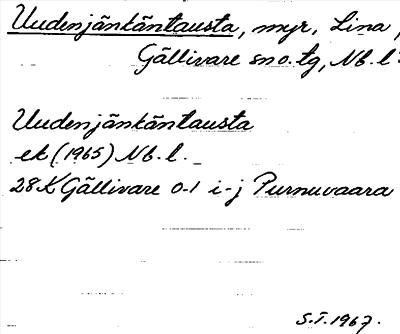 Uudenjänkäntausta, myr, Lina,
Gällivare sno.tg, Nb.l.
Uudenjänkäntausta
ek (1965) Nb.l.
28K Gällivare 0-1 i-j Purnuvaara
S.T. 1967.